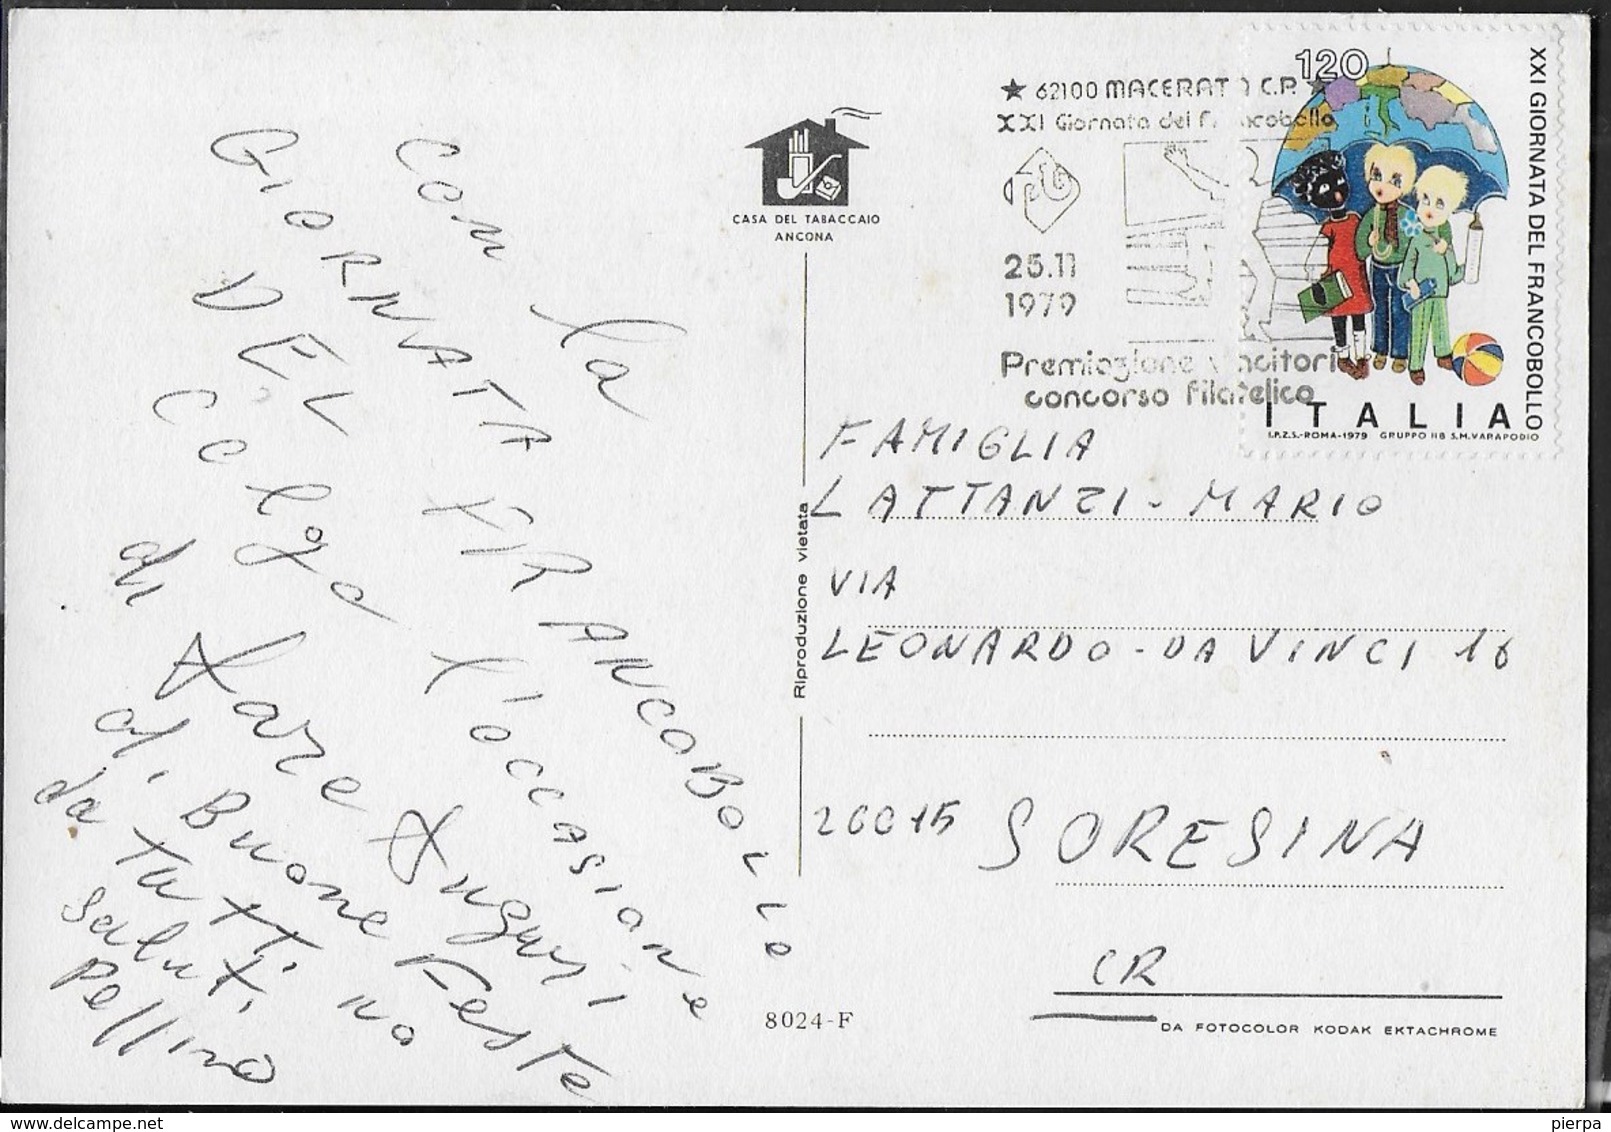 con la
GIORNATA
DEL FRANCOBOLLO
colgo l'occasione
di fare auguri
di Buone Feste
da tutti noi
saluti
Pellino
CASA DEL TABACCAIO
ANCONA
Riproduzione vietata
8024-F
★ 62100 MACERATA C.P. ★
XXI Giornata del Francobollo
25.11
1979
Premiazione vincitori
concorso filatelico
120
XXI GIORNATA DEL FRANCOBOLLO
ITALIA
I.P.Z.S.-ROMA-1979 GRUPPO IIB S.M.VARAPODIO
FAMIGLIA
LATTANZI - MARIO
VIA
LEONARDO - DA VINCI 16
26015 SORESINA
CR
DA FOTOCOLOR KODAK EKTACHROME
pierpa